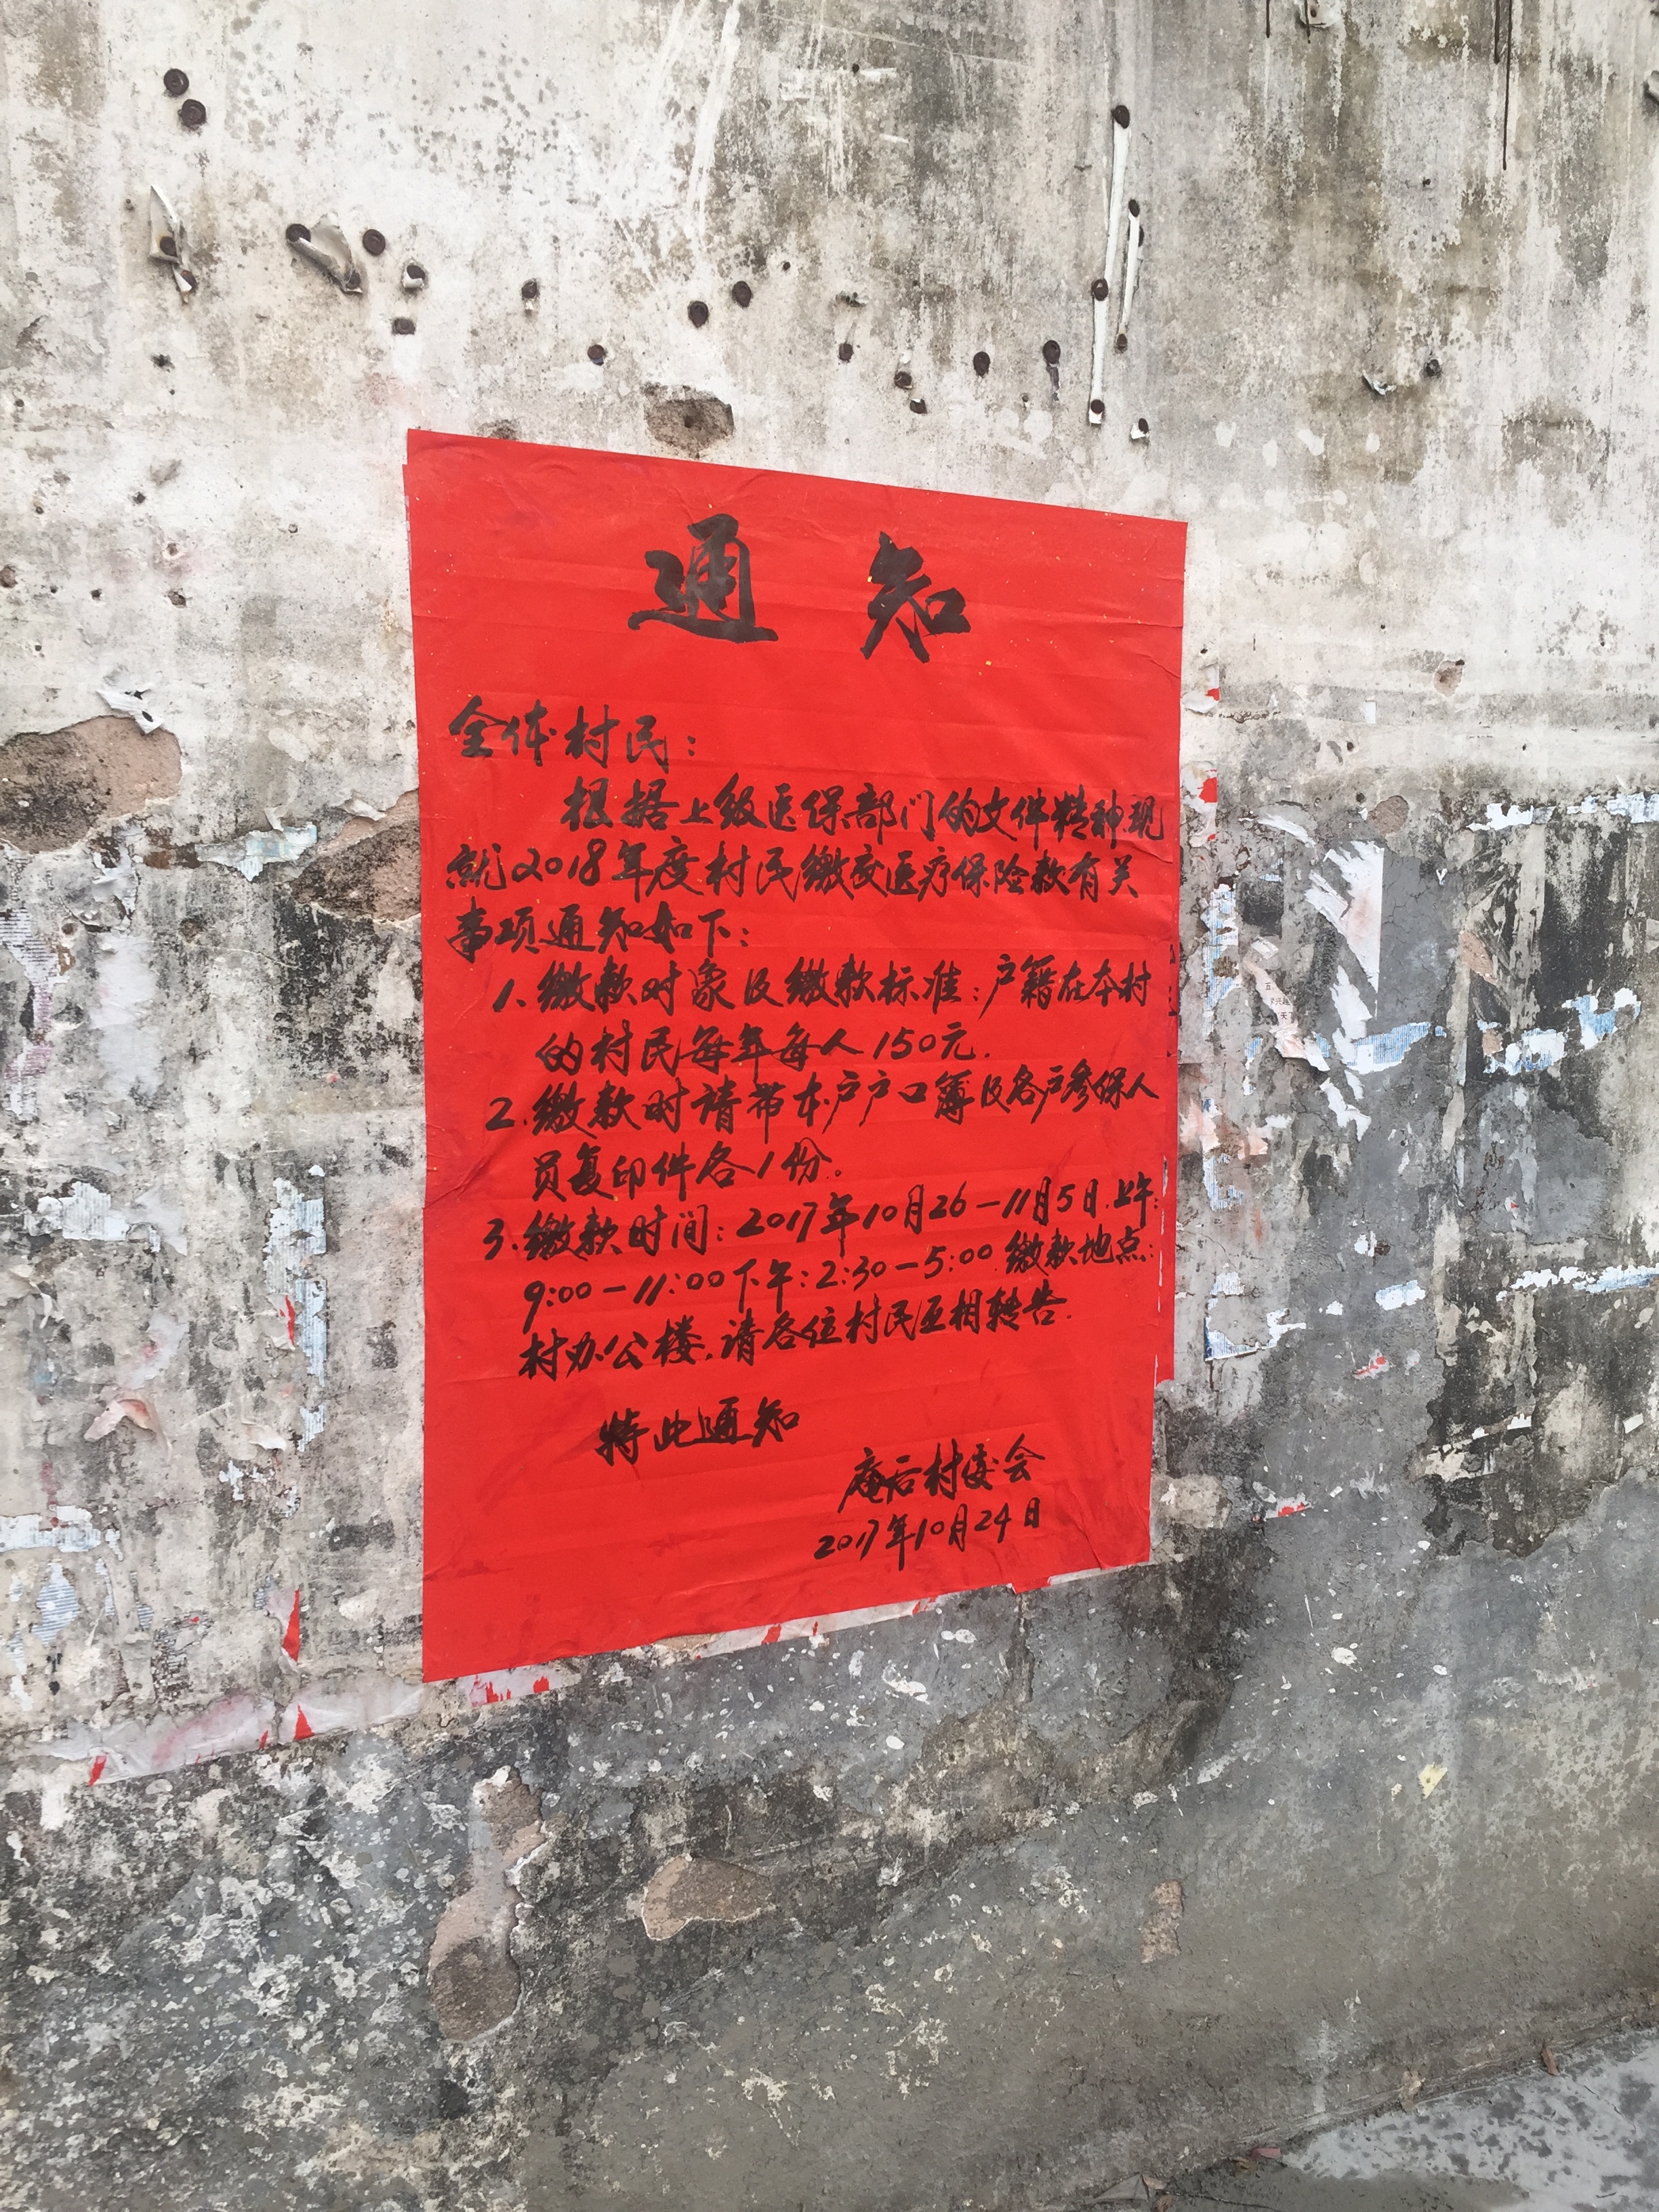 通知
全体村民：
根据上级医保部门的文件精神现
就2018年度村民缴交医疗保险款有关
事项通知如下：
1. 缴款对象及缴款标准：户籍在本村
的村民每年每人150元.
2. 缴款时请带本户户口簿及各户参保人
员复印件各1份。
3. 缴款时间：2017年10月26－11月5日.上午：
9:00－11:00下午：2:30－5:00 缴款地点：
村办公楼.请各位村民互相转告.
特此通知
庵后村委会
2017年10月24日